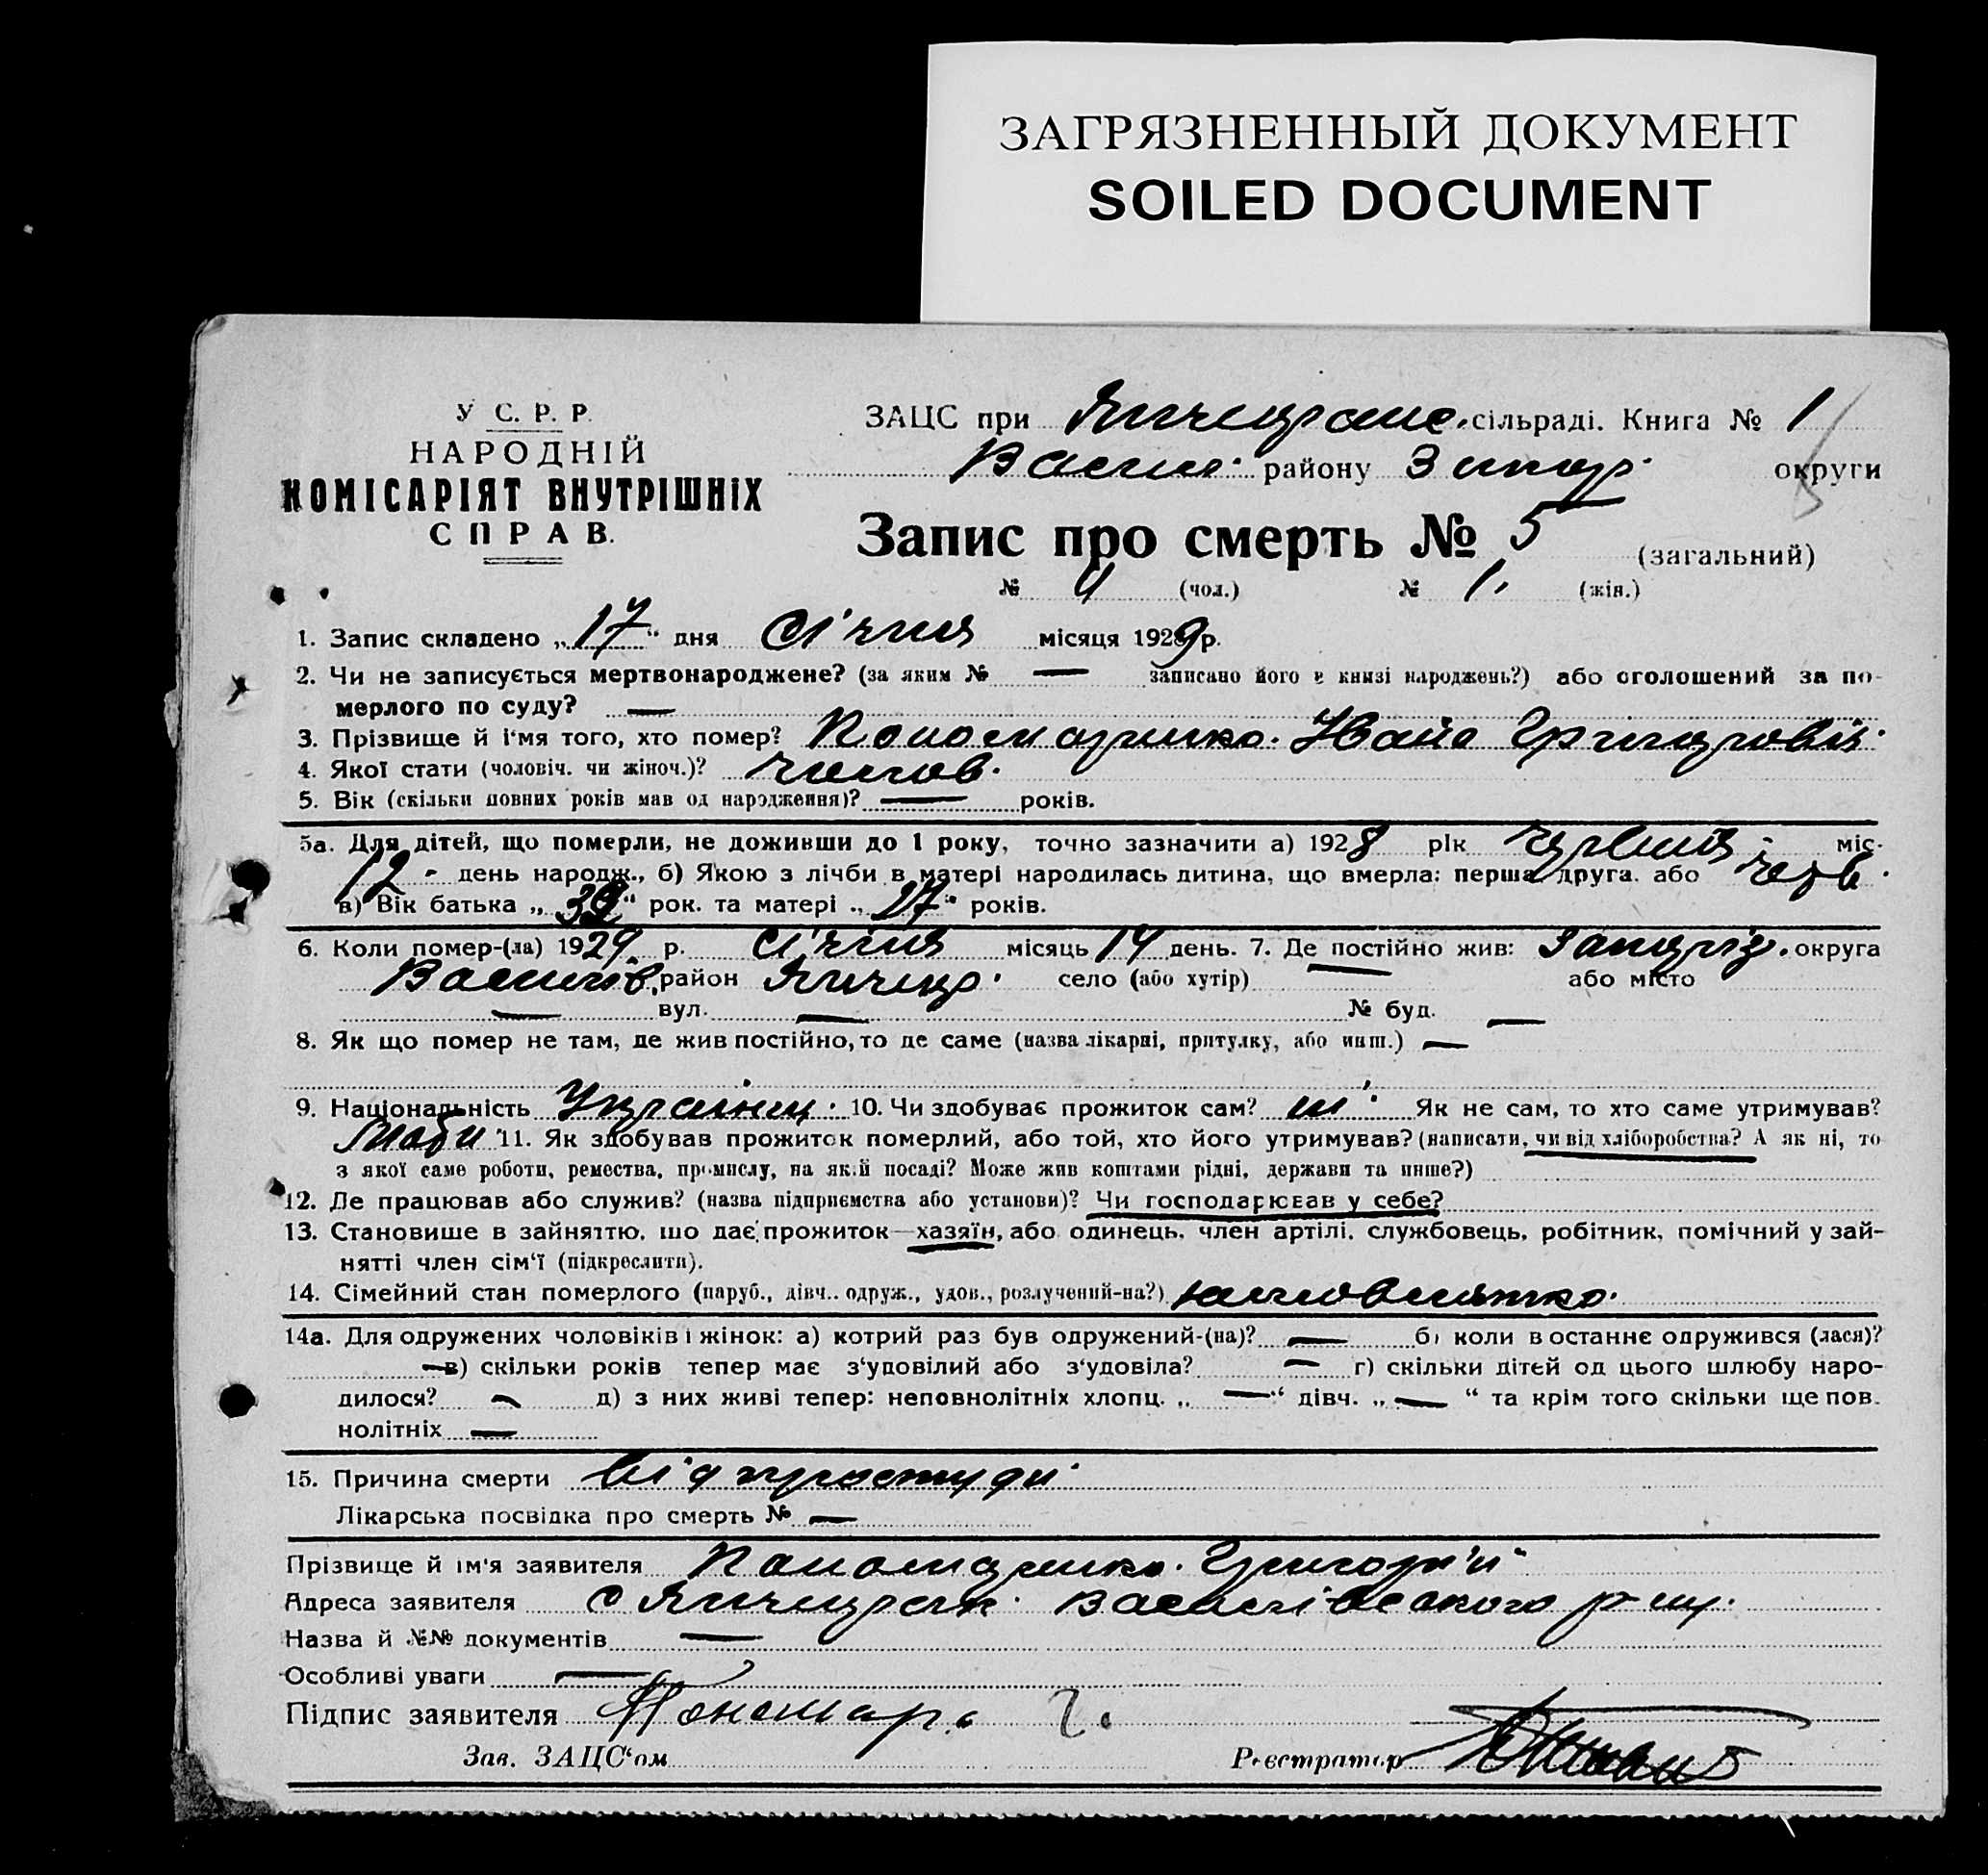 ЗАГРЯЗНЕННЫЙ ДОКУМЕНТ
SOILED DOCUMENT
У С. Р. Р.
НАРОДНІЙ
КОМІСАРІЯТ ВНУТРІШНІХ
СПРАВ.
ЗАЦС при сільраді. Книга № 1
Васил. району Запор. округи
Запис про смерть № 5 (загальний)
№ 4 (чол.) № 1. (жін.)
1. Запис складено „17“ дня Січня місяця 1929 р.
2. Чи не записується мертвонароджене? (за яким № — записано його в книзі народжень?) або оголошений за по-
мерлого по суду? —
3. Прізвище й і'мя того, хто помер? Пономаренко.
4. Якої стати (чоловіч. чи жіноч.)? чолов.
5. Вік (скільки повних років мав од народження)? — років.
5а. Для дітей, що померли, не доживши до 1 року, точно зазначити а) 1928 рік червня міс.
12 день народж., б) Якою з лічби в матері народилась дитина, що вмерла: перша, друга, або
в) Вік батька „39“ рок. та матері „27“ років.
6. Коли помер-(ла) 1929 р. січня місяць 14 день. 7. Де постійно жив: Запоріз. округа
Василів. район Янчекр. село (або хутір) — або місто
— вул. — № буд. —
8. Як що помер не там, де жив постійно, то де саме (назва лікарні, притулку, або инш.) —
9. Національність Українец. 10. Чи здобуває прожиток сам? ні. Як не сам, то хто саме утримував?
11. Як здобував прожиток померлий, або той, хто його утримував? (написати, чи від хліборобства? А як ні, то
з якої саме роботи, ремества, промислу, на якій посаді? Може жив коштами рідні, держави та инше?)
12. Де працював або служив? (назва підприємства або установи)? Чи господарював у себе?
13. Становише в зайняттю, що дає прожиток—хазяїн, або одинець, член артілі, службовець, робітник, помічний у зай-
нятті член сім'ї (підкреслити).
14. Сімейний стан померлого (паруб., дівч.. одруж., удов., розлучений-на?)
14а. Для одружених чоловіків і жінок: а) котрий раз був одружений-(на)? — б) коли в останнє одружився (лася)?
— в) скільки років тепер має з'удовілий або з'удовіла? — г) скільки дітей од цього шлюбу наро-
дилося? — д) з них живі тепер: неповнолітніх хлопц. „—“ дівч. „—“ та крім того скільки ще пов.
нолітніх —
15. Причина смерти від простуди
Лікарська посвідка про смерть № —
Прізвище й ім'я заявителя Пономаренко. Григорій
Адреса заявителя с Янчекрак. Василівского р-ну.
Назва й №№ документів —
Особливі уваги —
Підпис заявителя Пономар. Г.
Зав. ЗАЦС'ом Реєстратор